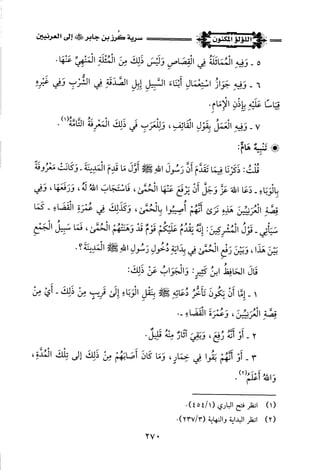 اللؤلؤ المكنون
سرية كُرْز بن جابر ﷺ إلى العرنيين
٥ - وَفِيهِ الْمُمَاثَلَةُ فِي الْقِصَاصِ وَلَيْسَ ذَلِكَ مِنَ الْمُثْلَةِ الْمَنْهِيِّ عَنْهَا.
٦ - وَفِيهِ جَوَازُ اسْتِعْمَالِ أَبْنَاءِ السَّبِيلِ إِبِلَ الصَّدَقَةِ فِي الشُّرْبِ وَفِي غَيْرِهِ
قِيَاسًا عَلَيْهِ بِإِذْنِ الْإِمَامِ.
٧ - وَفِيهِ الْعَمَلُ بِقَوْلِ الْقَائِفِ، وَلِلْعَرَبِ فِي ذَلِكَ الْمَعْرِفَةُ التَّامَّةُ(١).
* تَنْبِيهٌ هَامٌّ:
قُلْتُ: ذَكَرْنَا فِيمَا تَقَدَّمَ أَنَّ رَسُولَ اللهِ ﷺ أَوَّلَ مَا قَدِمَ الْمَدِينَةَ - وَكَانَتْ مَعْرُوفَةً
بِالْوَبَاءِ - دَعَا اللهَ عَزَّ وَجَلَّ أَنْ يَرْفَعَ عَنْهَا الْحُمَّى، فَاسْتَجَابَ اللهُ لَهُ، وَرَفَعَهَا، وَفِي
قِصَّةِ الْعُرَنِيِّينَ هَذِهِ نَرَى أَنَّهُمْ أُصِيبُوا بِالْحُمَّى، وَكَذَلِكَ فِي عُمْرَةِ الْقَضَاءِ - كَمَا
سَيَأْتِي - قَوْلُ الْمُشْرِكِينَ: إِنَّهُ يَقْدُمُ عَلَيْكُمْ قَوْمٌ قَدْ وَهَنَتْهُمُ الْحُمَّى، فَمَا سَبِيلُ الْجَمْعِ
بَيْنَ هَذَا، وَبَيْنَ رَفْعِ الْحُمَّى فِي بِدَايَةِ دُخُولِ رَسُولِ اللهِ ﷺ الْمَدِينَةَ؟.
قَالَ الْحَافِظُ ابْنُ كَثِيرٍ: وَالْجَوَابُ عَنْ ذَلِكَ:
١ - إِمَّا أَنْ يَكُونَ تَأَخَّرَ دُعَائِهِ ﷺ بِنَقْلِ الْوَبَاءِ إِلَى قَرِيبٍ مِنْ ذَلِكَ - أَيْ مِنْ
قِصَّةِ الْعُرَنِيِّينَ، وَعُمْرَةِ الْقَضَاءِ -.
٢ - أَوْ أَنَّهُ رُفِعَ، وَبَقِيَ آثَارٌ مِنْهُ قَلِيلٌ.
٣ - أَوْ أَنَّهُمْ بَقُوا فِي خِمَارٍ، وَمَا كَانَ أَصَابَهُمْ مِنْ ذَلِكَ إِلَى تِلْكَ الْمُدَّةِ،
وَاللهُ أَعْلَمُ(٢).
(١) انظر فتح الباري (٤٥٤/١).
(٢) انظر البداية والنهاية (٢٣٧/٣).
٢٧٠